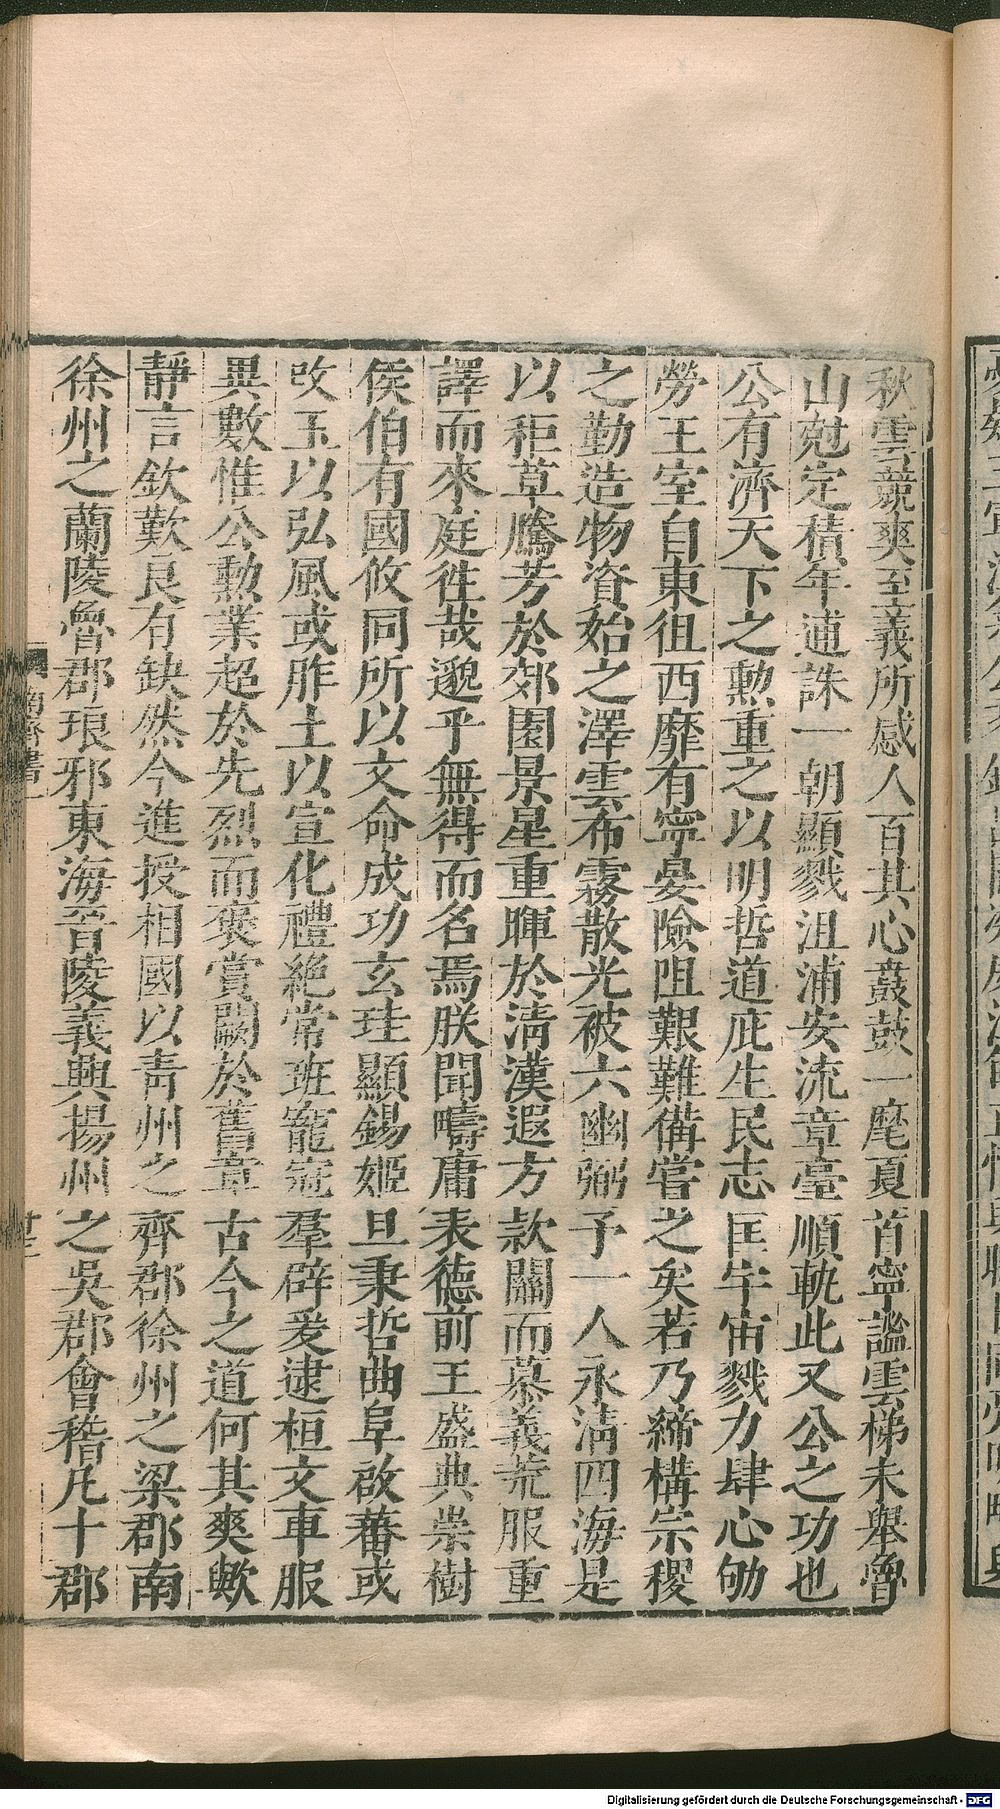 秋雲競爽至義所感人百其心鼖鼓一麾夏首寧謐雲梯未舉魯
山尅定積年逋誅一朝顯戮沮浦安流章臺順軌此又公之功也
公有濟天下之勳重之以明哲道庇生民志匡宇宙戮力肆心劬
勞王室自東徂西靡有寧晏險阻艱難備嘗之矣若乃締構宗稷
之勤造物資始之澤雲布霧散光被六幽弼予一人永淸四海是
以秬草騰芳於郊園景星重暉於淸漢遐方款關而慕義荒服重
譯而來庭徃哉邈乎無得而名焉朕聞疇庸表徳前王盛典崇樹
侯伯有國攸同所以文命成功玄珪顯錫姬旦秉哲曲阜啟蕃或
攻玉以弘風或胙土以宣化禮絶常班寵冠羣辟爰逮桓文車服
異數惟公勳業超於先烈而褒賞闕於舊章古今之道何其爽歟
靜言欽歎良有缺然今進授相國以靑州之齊郡徐州之梁郡南
徐州之蘭陵魯郡琅邪東海晉陵義興揚州之吳郡會稽凡十郡
南齊書一
十三
Digitalisierung gefördert durch die Deutsche Forschungsgemeinschaft - DFG